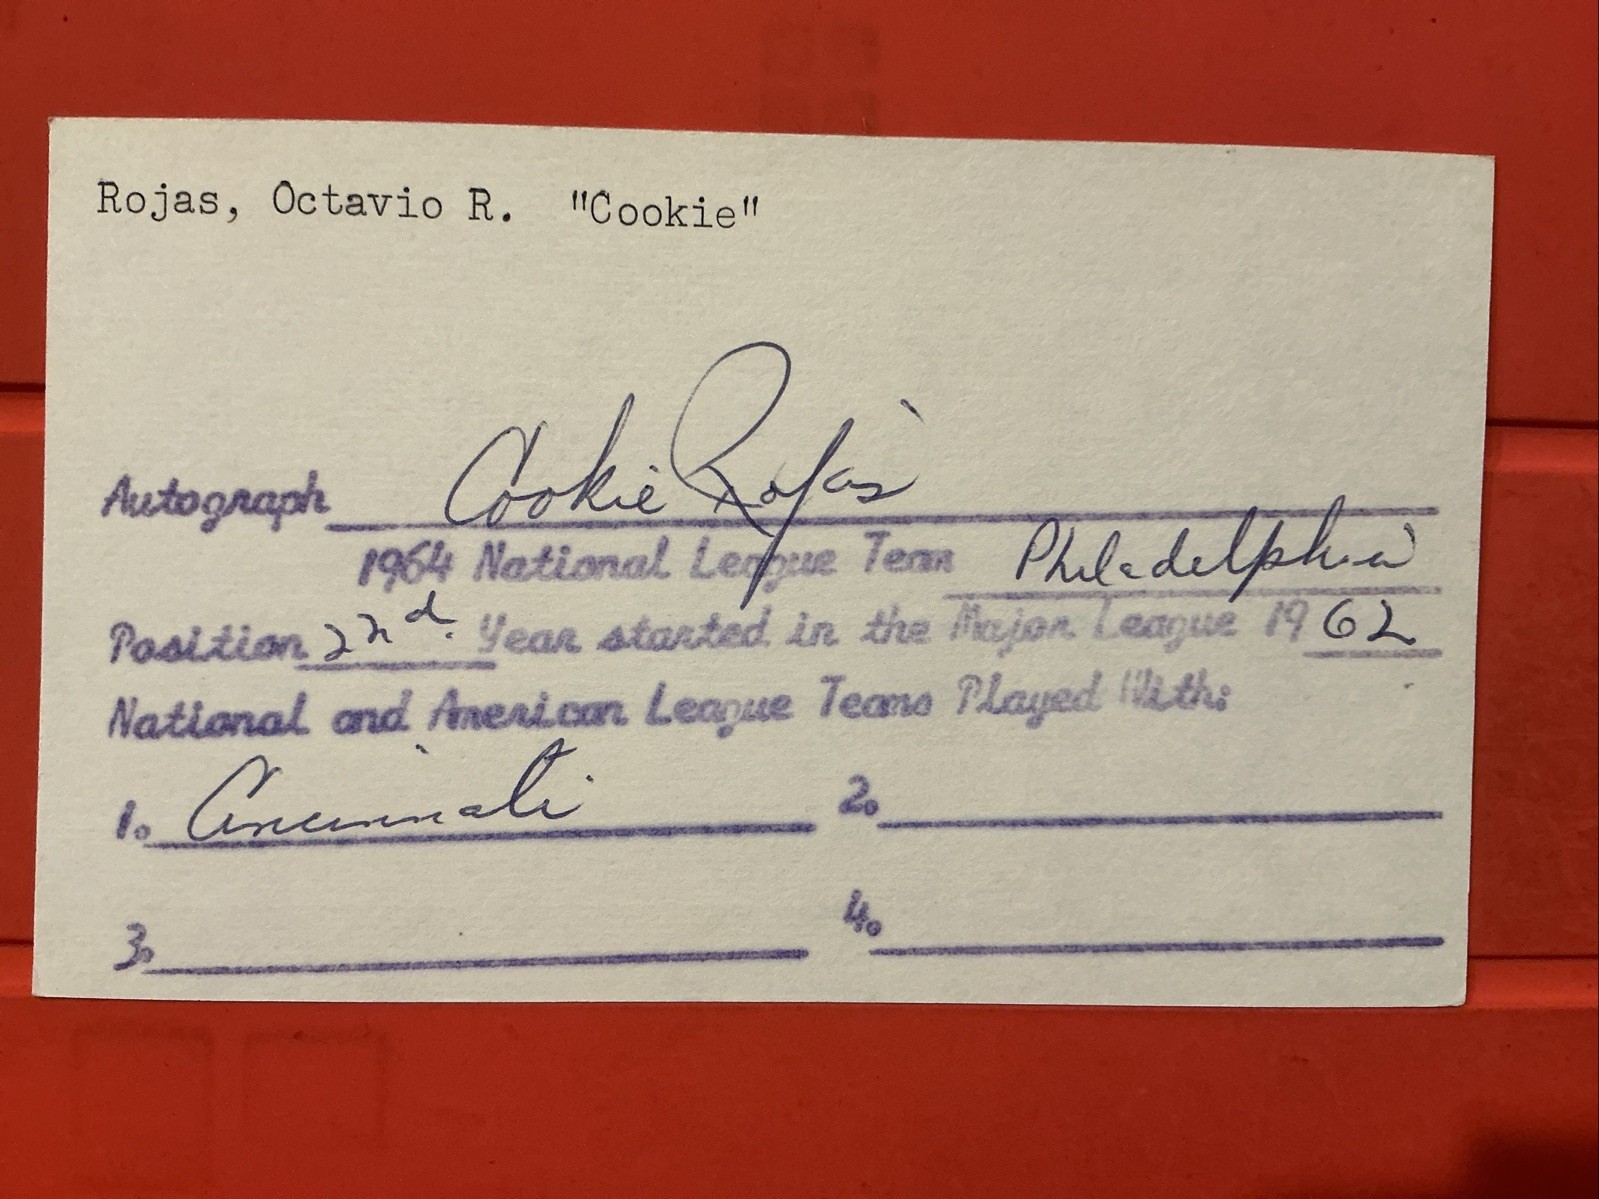 Rojas, Octavio R. "Cookie"
Autograph Cookie Rojas
1964 National League Team Philadelphia
Position 2nd. Year started in the Major League 1962
National and American League Teams Played With:
1. Cincinnati 2.
3. 4.